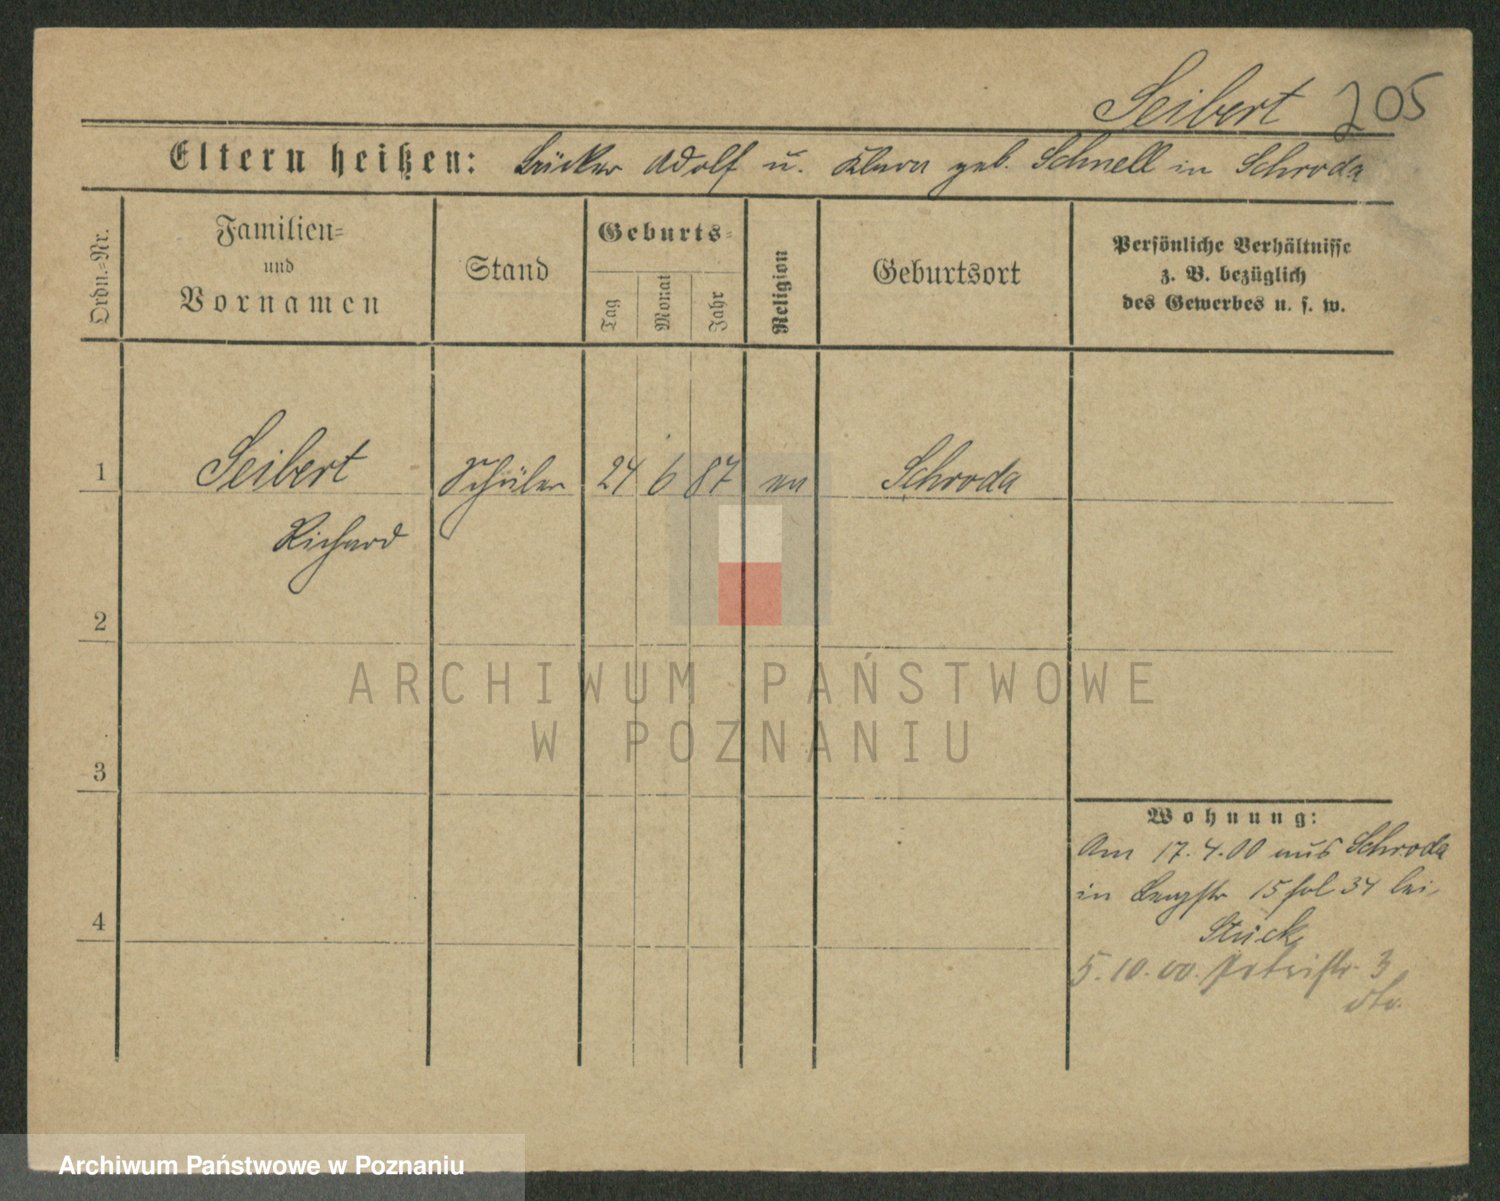 Seibert 205
Eltern heißen: Bäcker Adolf u. Klara geb. Schnell in Schroda
Ordn.-Nr.
Familien-
und
Vornamen
Stand
Geburts-
Tag
Monat
Jahr
Religion
Geburtsort
Persönliche Verhältnisse
z. B. bezüglich
des Gewerbes u. s. w.
1 Seibert Schüler 24 6 87 ev Schroda
Richard
2
3
4
Wohnung:
Am 17.4.00 aus Schroda
in 15 34 bei
Stück
5.10.00. Petristr. 3
ARCHIWUM PAŃSTWOWE
W POZNANIU
Archiwum Państwowe w Poznaniu